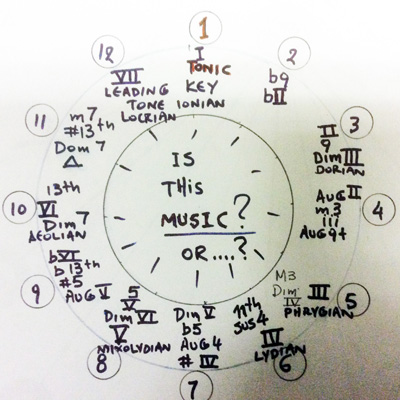 1
I
TONIC
KEY
IONIAN
2
b9
bII
3
II
9
Dim III
DORIAN
4
AUG II
m.3
iii
AUG 9+
5
M3
Dim
IV
III
PHRYGIAN
6
11th
SUS4
IV
LYDIAN
7
Dim V
b5
AUG 4
# IV
8
5
V
Dim VI
V
MIXOLYDIAN
9
bVI
b13th
#5
AUG V
10
13th
VI
Dim 7
AEOLIAN
11
m7
#13th
Dom 7
12
VII
LEADING
TONE
LOCRIAN
IS
THIS
MUSIC?
OR....?